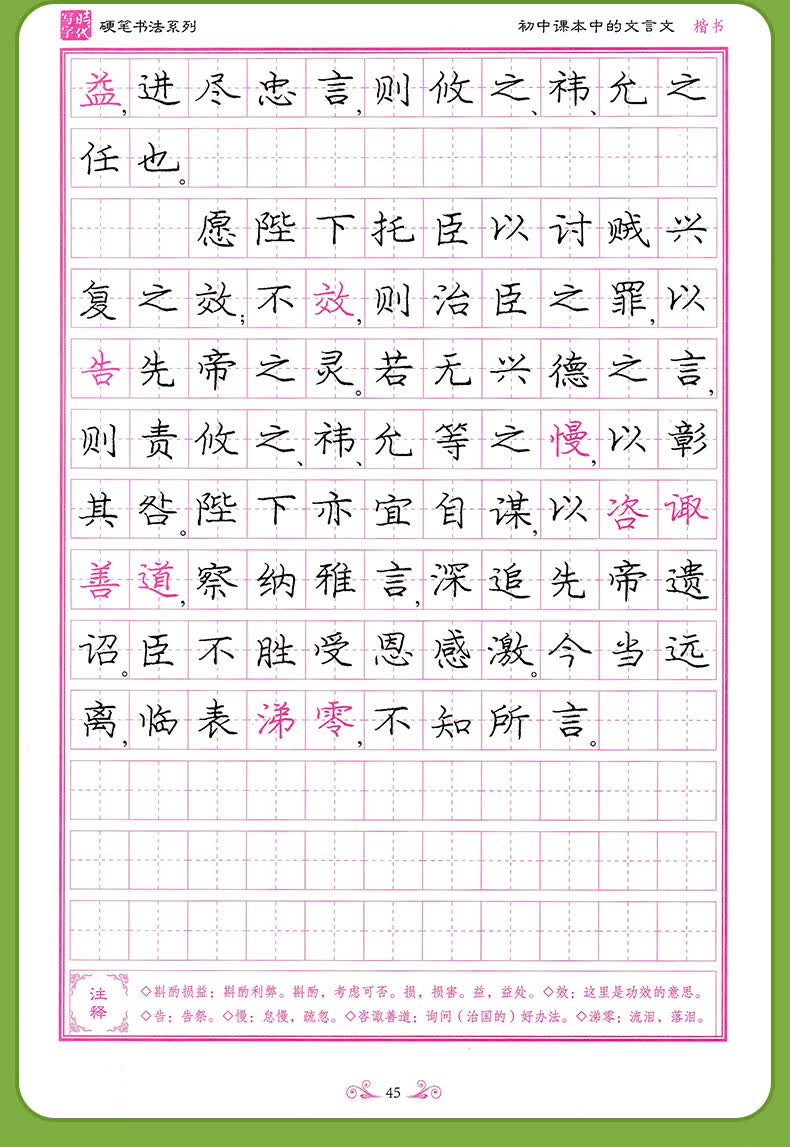 写字时代 硬笔书法系列 初中课本中的文言文 楷书
益,进尽忠言,则攸之、祎、允之
任也。
愿陛下托臣以讨贼兴
复之效;不效,则治臣之罪,以
告先帝之灵。若无兴德之言,
则责攸之、祎、允等之慢,以彰
其咎。陛下亦宜自谋,以咨诹
善道,察纳雅言,深追先帝遗
诏。臣不胜受恩感激。今当远
离,临表涕零,不知所言。
注释
◇斟酌损益:斟酌利弊。斟酌,考虑可否。损,损害。益,益处。◇效:这里是功效的意思。
◇告:告祭。◇慢:怠慢,疏忽。◇咨诹善道:询问(治国的)好办法。◇涕零:流泪,落泪。
45